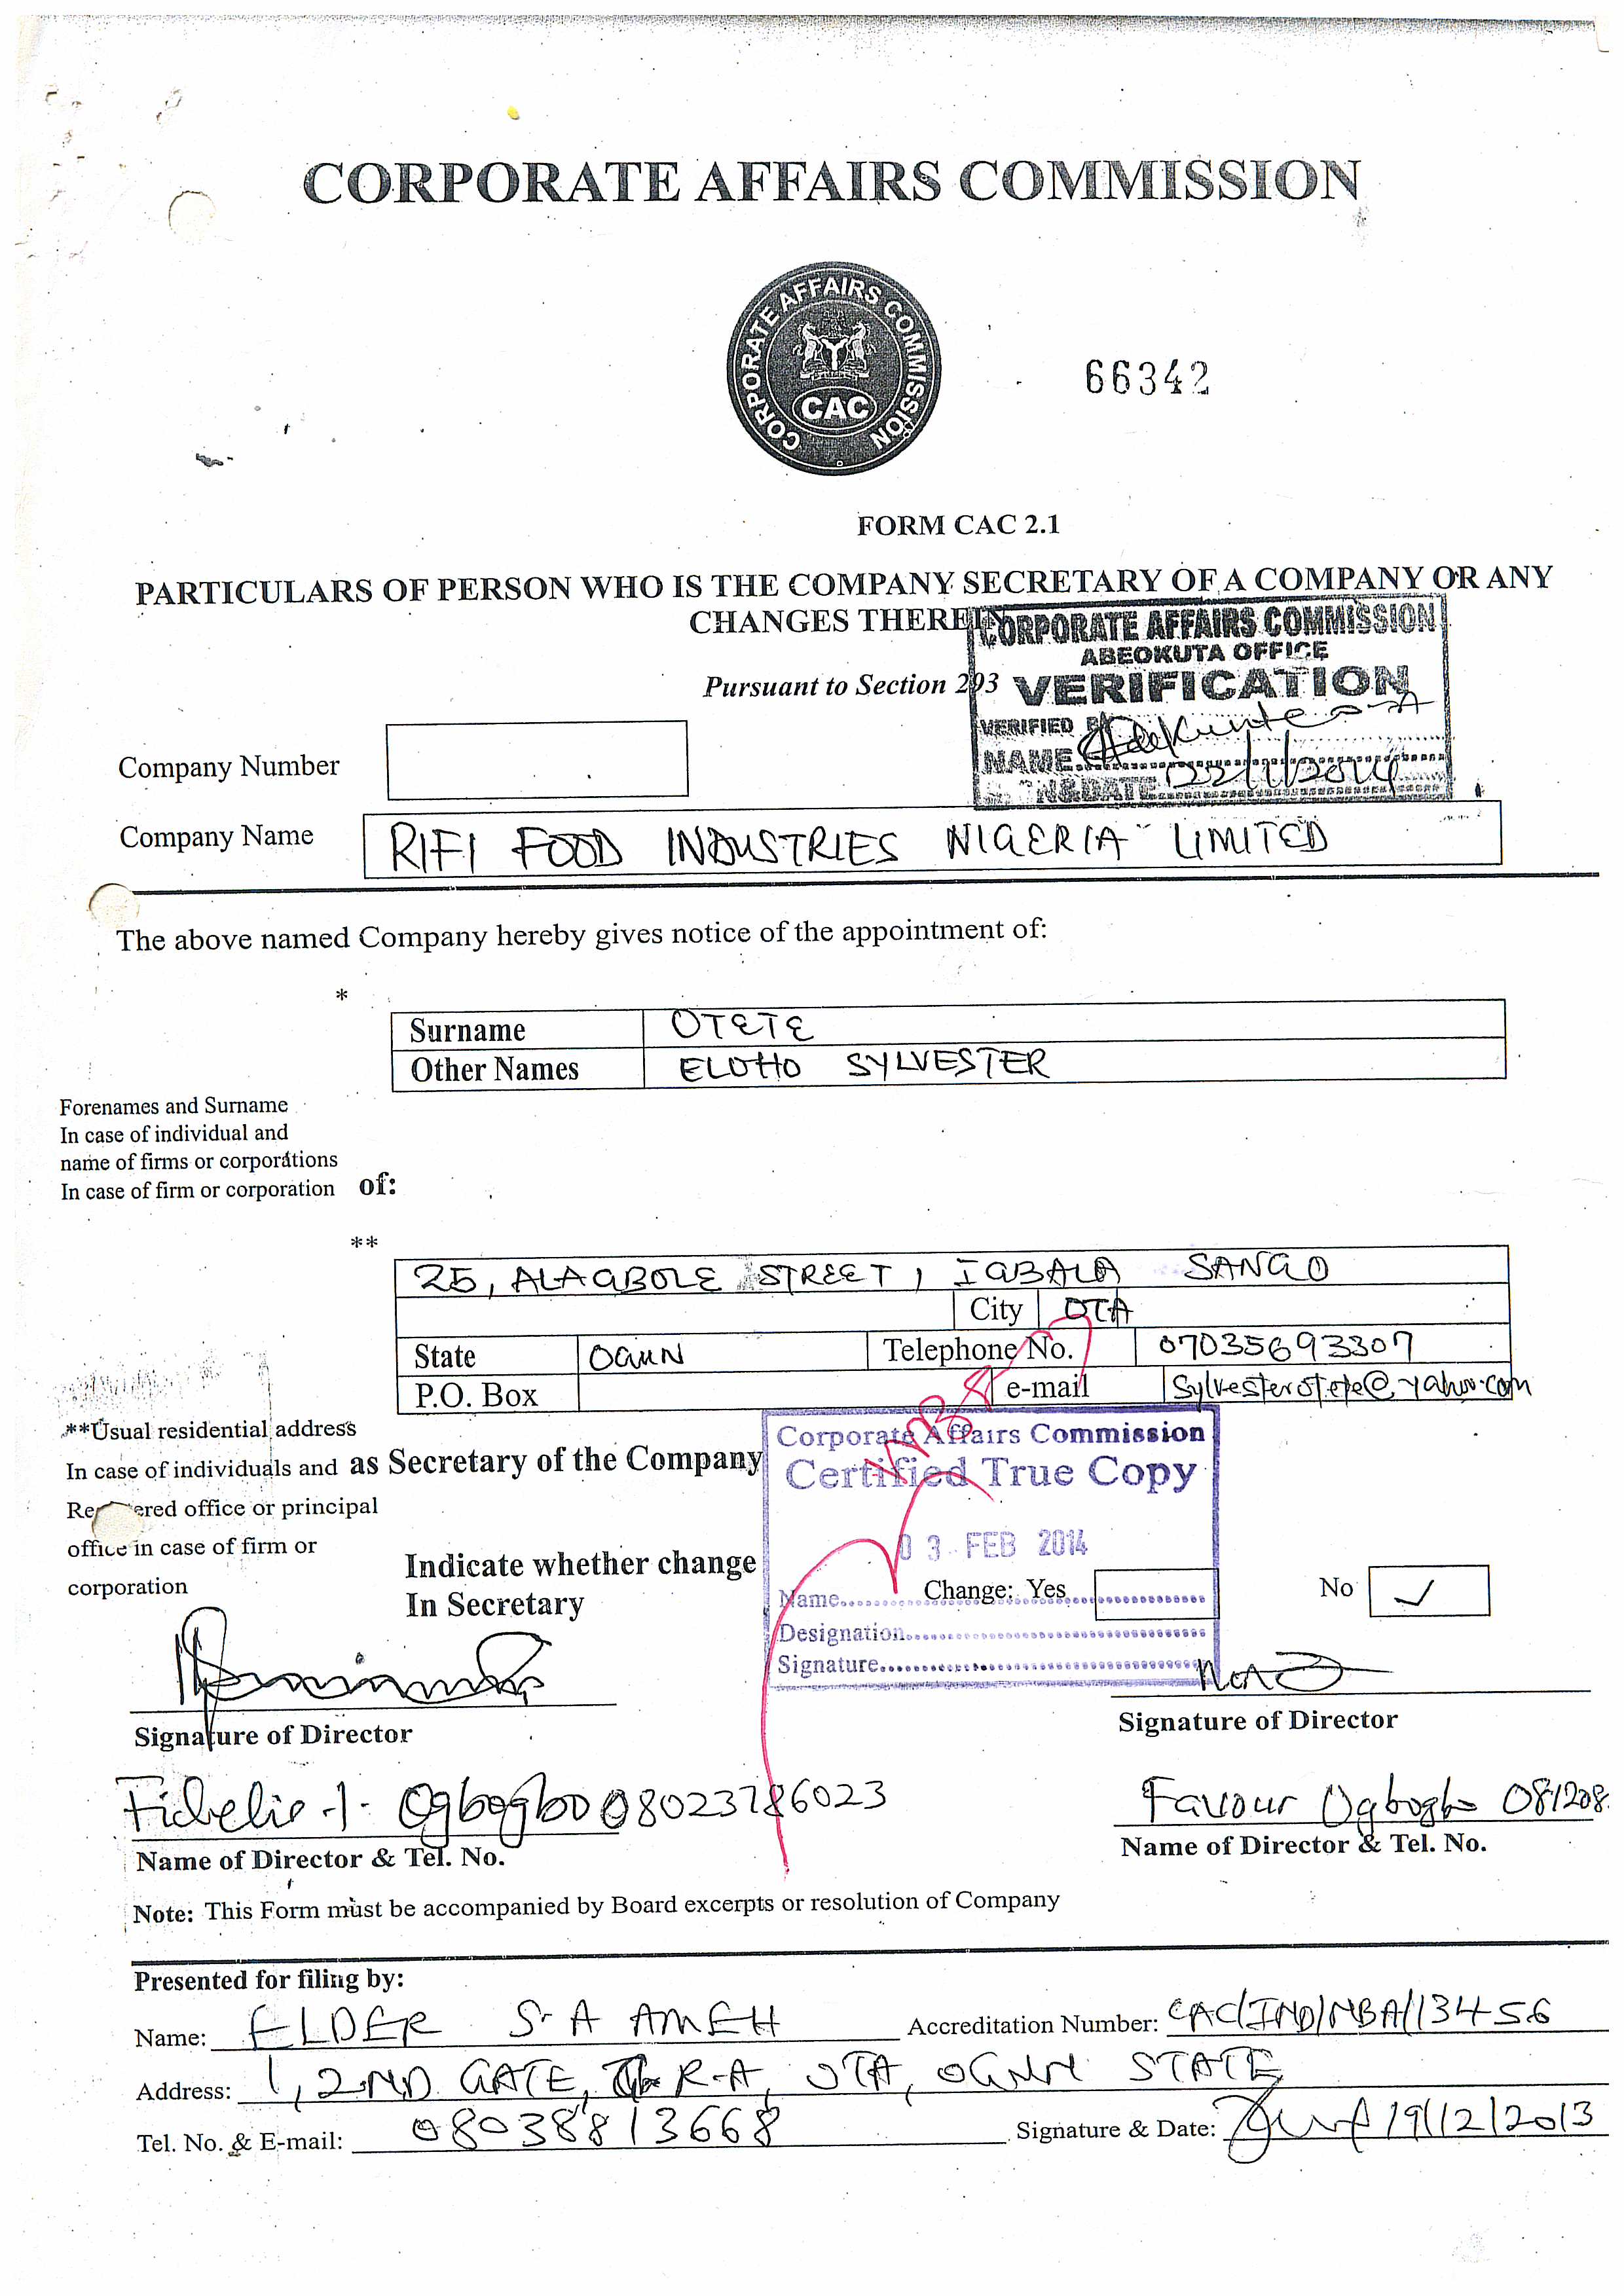 CORPORATE AFFAIRS COMMISSION
CORPORATE AFFAIRS COMMISSION
CAC
66342
FORM CAC 2.1
PARTICULARS OF PERSON WHO IS THE COMPANY SECRETARY OF A COMPANY OR ANY
CHANGES THEREIN
CORPORATE AFFAIRS COMMISSION
ABEOKUTA OFFICE
Pursuant to Section 293
VERIFICATION
VERIFIED BY
NAME
22/1/2014
Company Number
Company Name RIFI FOOD INDUSTRIES NIGERIA LIMITED
The above named Company hereby gives notice of the appointment of:
*
Surname OTETE
Other Names ELOHO SYLVESTER
Forenames and Surname
In case of individual and
name of firms or corporations
In case of firm or corporation of:
**
25, ALAGBOLE STREET, IGBALA SANGO
City OTA
State OGUN Telephone No. 07035693307
P.O. Box e-mail Sylvesterotete@yahoo.com
**Usual residential address
In case of individuals and as Secretary of the Company
Registered office or principal
office in case of firm or
corporation
Corporate Affairs Commission
Certified True Copy
03 FEB 2014
Indicate whether change
In Secretary
Change: Yes No ✓
Name
Designation
Signature
Signature of Director Signature of Director
Fidelis .I. Ogbogbo 08023786023 Favour Ogbogbo 081208
Name of Director & Tel. No. Name of Director & Tel. No.
Note: This Form must be accompanied by Board excerpts or resolution of Company
Presented for filing by:
Name: ELDER S. A AMEH Accreditation Number: CAC/IND/NBA/13456
Address: 1, 2ND GATE, R-A, OTA, OGUN STATE
Tel. No. & E-mail: 08038813668 Signature & Date: 19/12/2013